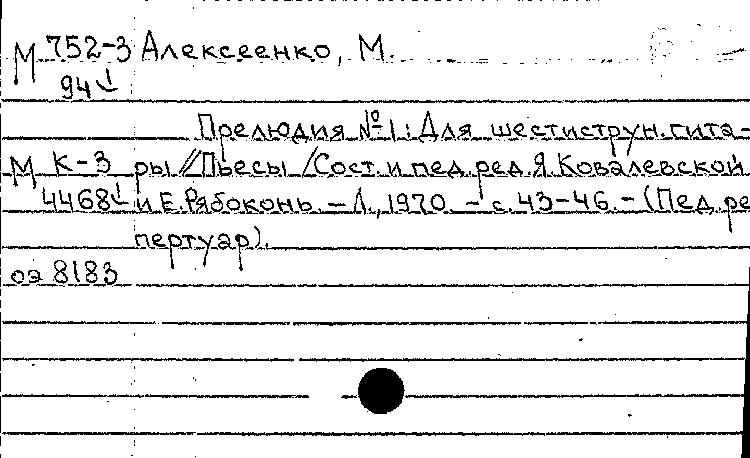 М 752-3 Алексеенко, М.
94
Прелюдия №1: Для шестиструн. гита-
М К-3 ры // Пьесы / Сост. и пед. ред. Я. Ковалевской
4468 и Е. Рябоконь. – Л., 1970. – с. 43-46. – (Пед. ре
пертуар).
оэ 8183